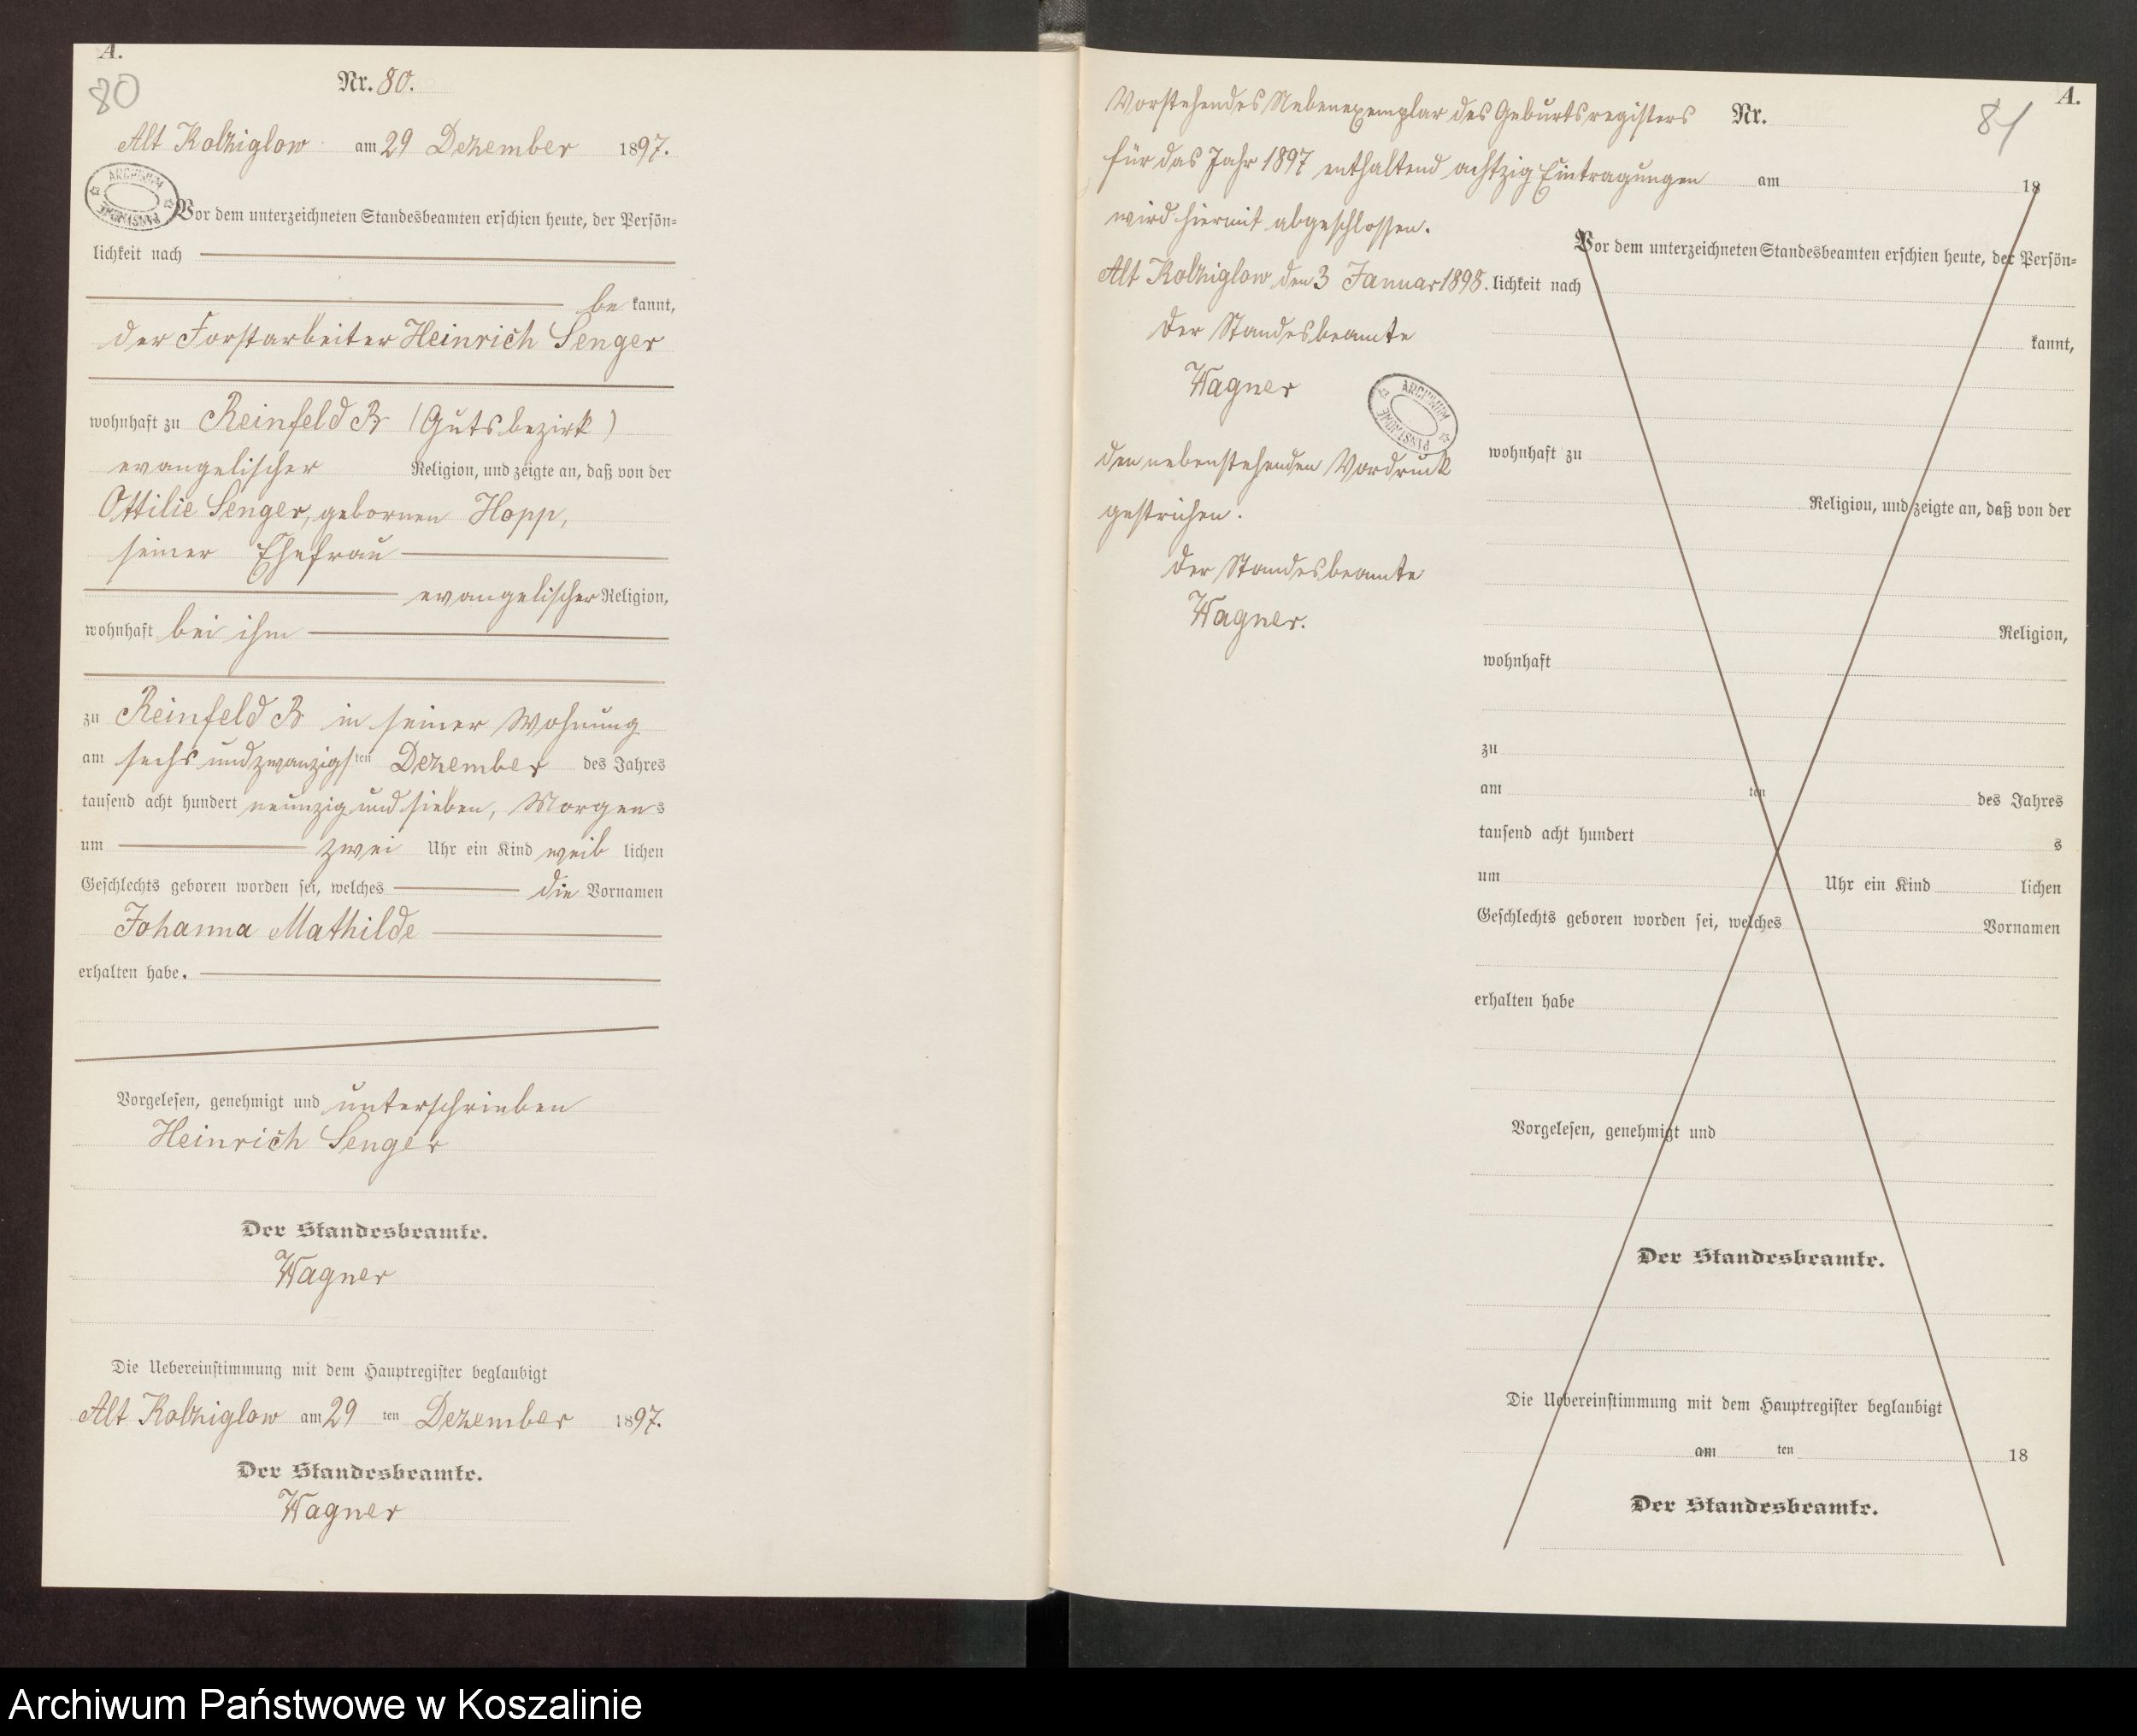 A.
80
Nr. 80.
Alt Kolziglow am 29 Dezember 1897.
ARCHIWUM PAŃSTWOWE
Vor dem unterzeichneten Standesbeamten erschien heute, der Persön-
lichkeit nach
be kannt,
der Forstarbeiter Heinrich Senger
wohnhaft zu Reinfeld B (Gutsbezirk)
evangelischer Religion, und zeigte an, daß von der
Ottilie Senger, gebornen Hopp,
seiner Ehefrau
evangelischer Religion,
wohnhaft bei ihm
zu Reinfeld B in seiner Wohnung
am sechs und zwanzigsten Dezember des Jahres
tausend acht hundert neunzig und sieben, Morgens
um zwei Uhr ein Kind weib lichen
Geschlechts geboren worden sei, welches die Vornamen
Johanna Mathilde
erhalten habe.
Vorgelesen, genehmigt und unterschrieben
Heinrich Senger
Der Standesbeamte.
Wagner
Die Uebereinstimmung mit dem Hauptregister beglaubigt
Alt Kolziglow am 29 ten Dezember 1897.
Der Standesbeamte.
Wagner
Vorstehendes Nebenexemplar des Geburtsregisters
für das Jahr 1897 enthaltend achtzig Eintragungen
wird hiermit abgeschlossen.
Alt Kolziglow den 3 Januar 1898.
Der Standesbeamte
Wagner
ARCHIWUM PAŃSTWOWE
den nebenstehenden Vordruck
gestrichen.
Der Standesbeamte
Wagner.
A.
81
Nr.
am 18
Vor dem unterzeichneten Standesbeamten erschien heute, der Persön-
lichkeit nach
kannt,
wohnhaft zu
Religion, und zeigte an, daß von der
Religion,
wohnhaft
zu
am ten des Jahres
tausend acht hundert s
um Uhr ein Kind lichen
Geschlechts geboren worden sei, welches Vornamen
erhalten habe
Vorgelesen, genehmigt und
Der Standesbeamte.
Die Uebereinstimmung mit dem Hauptregister beglaubigt
am ten 18
Der Standesbeamte.
Archiwum Państwowe w Koszalinie